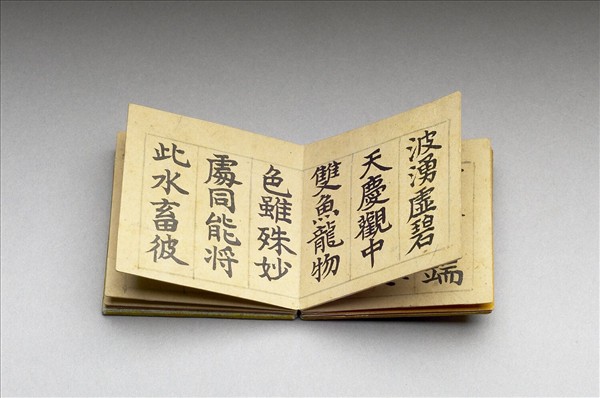 波湧虛碧
天慶觀中
雙魚龍物
色雖殊妙
處同能将
此水畜彼
端